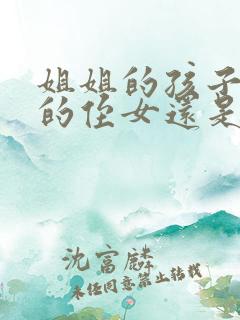 姐姐的孩子
的侄女還是
沈富麟
未经同意禁止转载